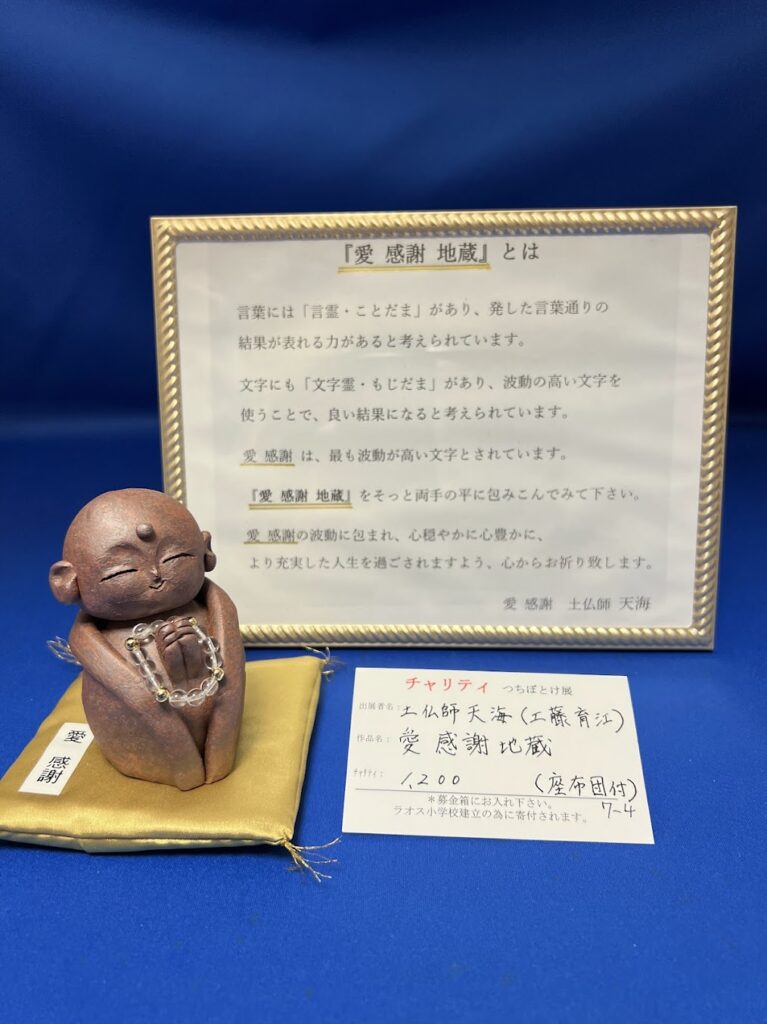 『愛 感謝 地蔵』とは
言葉には「言霊・ことだま」があり、発した言葉通りの
結果が表れる力があると考えられています。
文字にも「文字霊・もじだま」があり、波動の高い文字を
使うことで、良い結果になると考えられています。
愛 感謝 は、最も波動が高い文字とされています。
『愛 感謝 地蔵』をそっと両手の平に包みこんでみて下さい。
愛 感謝の波動に包まれ、心穏やかに心豊かに、
より充実した人生を過ごされますよう、心からお祈り致します。
愛 感謝 土仏師 天海
愛 感謝
チャリティ つちぼとけ展
出展者名：土仏師 天海(工藤育江)
作品名：愛 感謝 地蔵
チャリティ：1,200 (座布団付)
＊募金箱にお入れ下さい。 7-4
ラオス小学校建立の為に寄付されます。